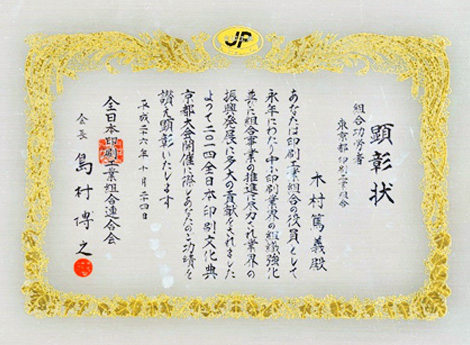 JP
顕彰状
組合功労者
東京都印刷工業組合
木村篤義殿
あなたは印刷工業組合の役員として
永年にわたり中小印刷業界の組織強化
並に組合事業の推進に尽力され業界の
振興発展に多大の貢献をされました
よって二〇一四全日本印刷文化典
京都大会開催に際しあなたのご功績を
讃え顕彰いたします
平成二十六年十月二十四日
全日本印刷工業組合連合会
会長 島村博之